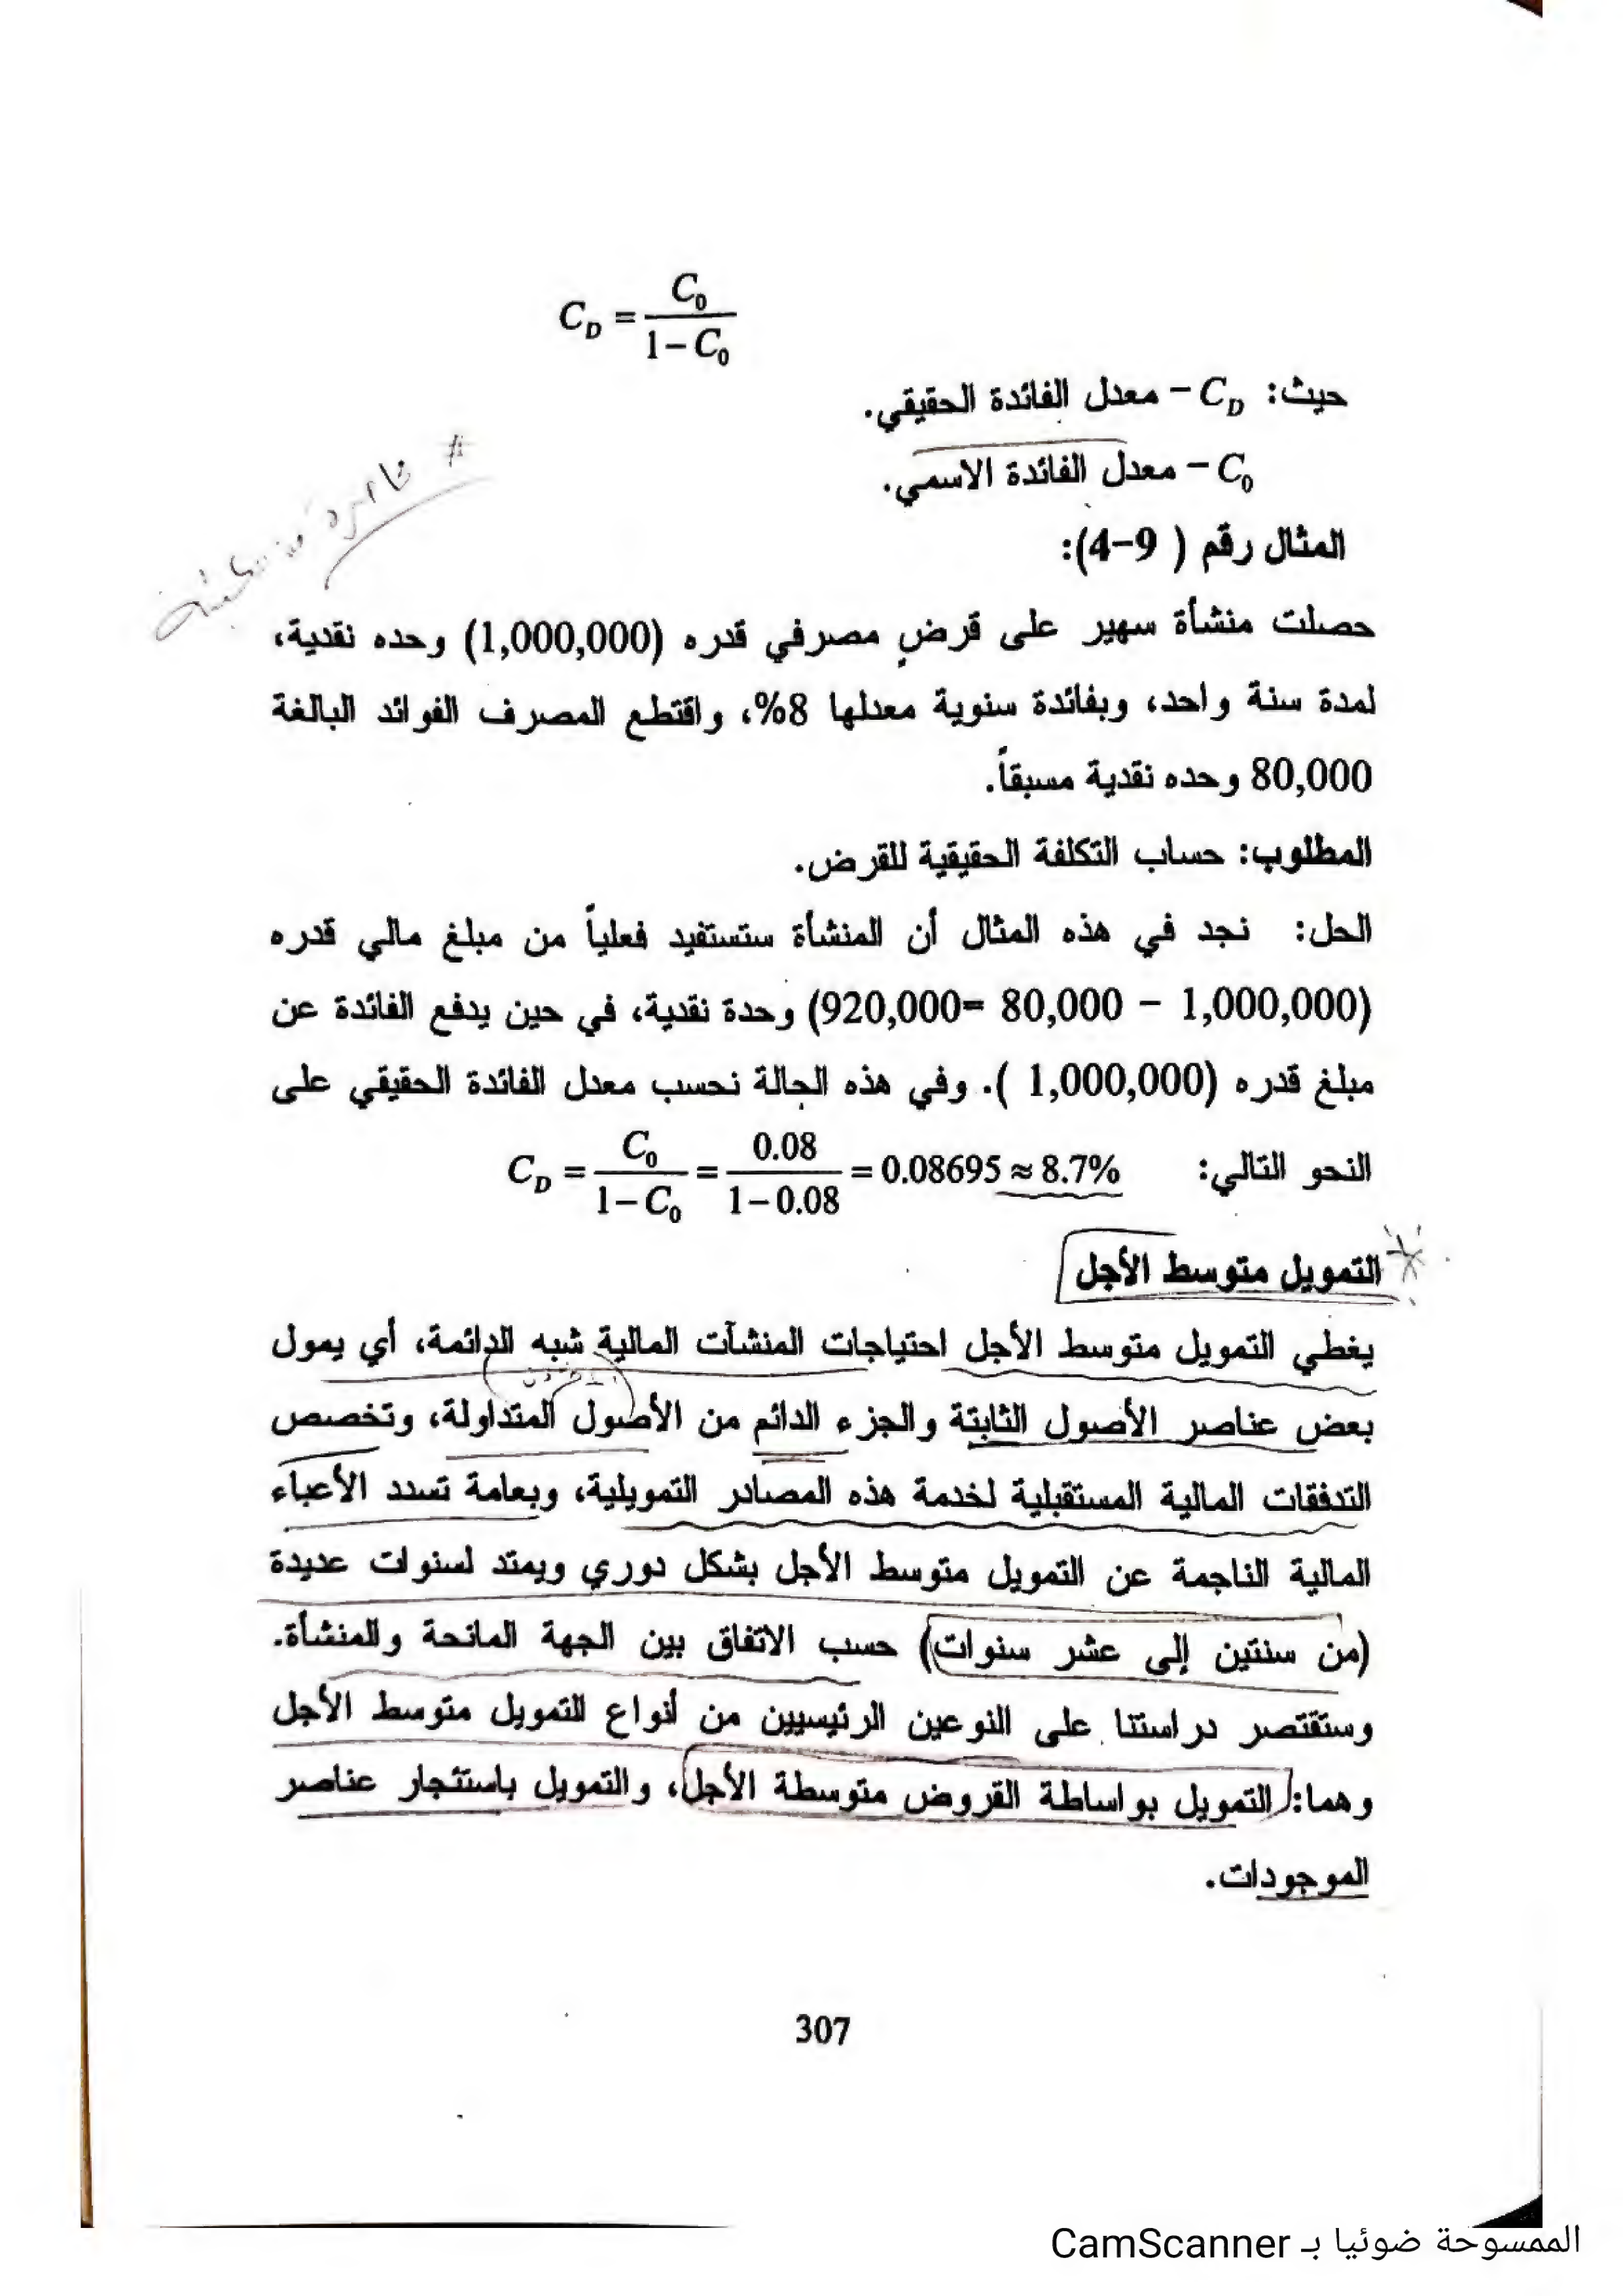 C_D = C_0 / (1 − C_0)
حيث: C_D − معدل الفائدة الحقيقي.
C_0 − معدل الفائدة الاسمي.
المثال رقم ( 9-4):
حصلت منشأة سهير على قرض مصرفي قدره (1,000,000) وحده نقدية،
لمدة سنة واحد، وبفائدة سنوية معدلها 8%، واقتطع المصرف الفوائد البالغة
80,000 وحده نقدية مسبقاً.
المطلوب: حساب التكلفة الحقيقية للقرض.
الحل: نجد في هذه المثال أن المنشأة ستستفيد فعلياً من مبلغ مالي قدره
(1,000,000 − 80,000 =920,000) وحدة نقدية، في حين يدفع الفائدة عن
مبلغ قدره (1,000,000 ). وفي هذه الحالة نحسب معدل الفائدة الحقيقي على
النحو التالي: C_D = C_0 / (1 − C_0) = 0.08 / (1 − 0.08) = 0.08695 ≈ 8.7%
التمويل متوسط الأجل
يغطي التمويل متوسط الأجل احتياجات المنشآت المالية شبه الدائمة، أي يمول
بعض عناصر الأصول الثابتة والجزء الدائم من الأصول المتداولة، وتخصص
التدفقات المالية المستقبلية لخدمة هذه المصادر التمويلية، وبعامة تسدد الأعباء
المالية الناجمة عن التمويل متوسط الأجل بشكل دوري ويمتد لسنوات عديدة
(من سنتين إلى عشر سنوات) حسب الاتفاق بين الجهة المانحة والمنشأة.
وستقتصر دراستنا على النوعين الرئيسيين من أنواع التمويل متوسط الأجل
وهما: التمويل بواساطة القروض متوسطة الأجل، والتمويل باستئجار عناصر
الموجودات.
307
الممسوحة ضوئيا بـ CamScanner